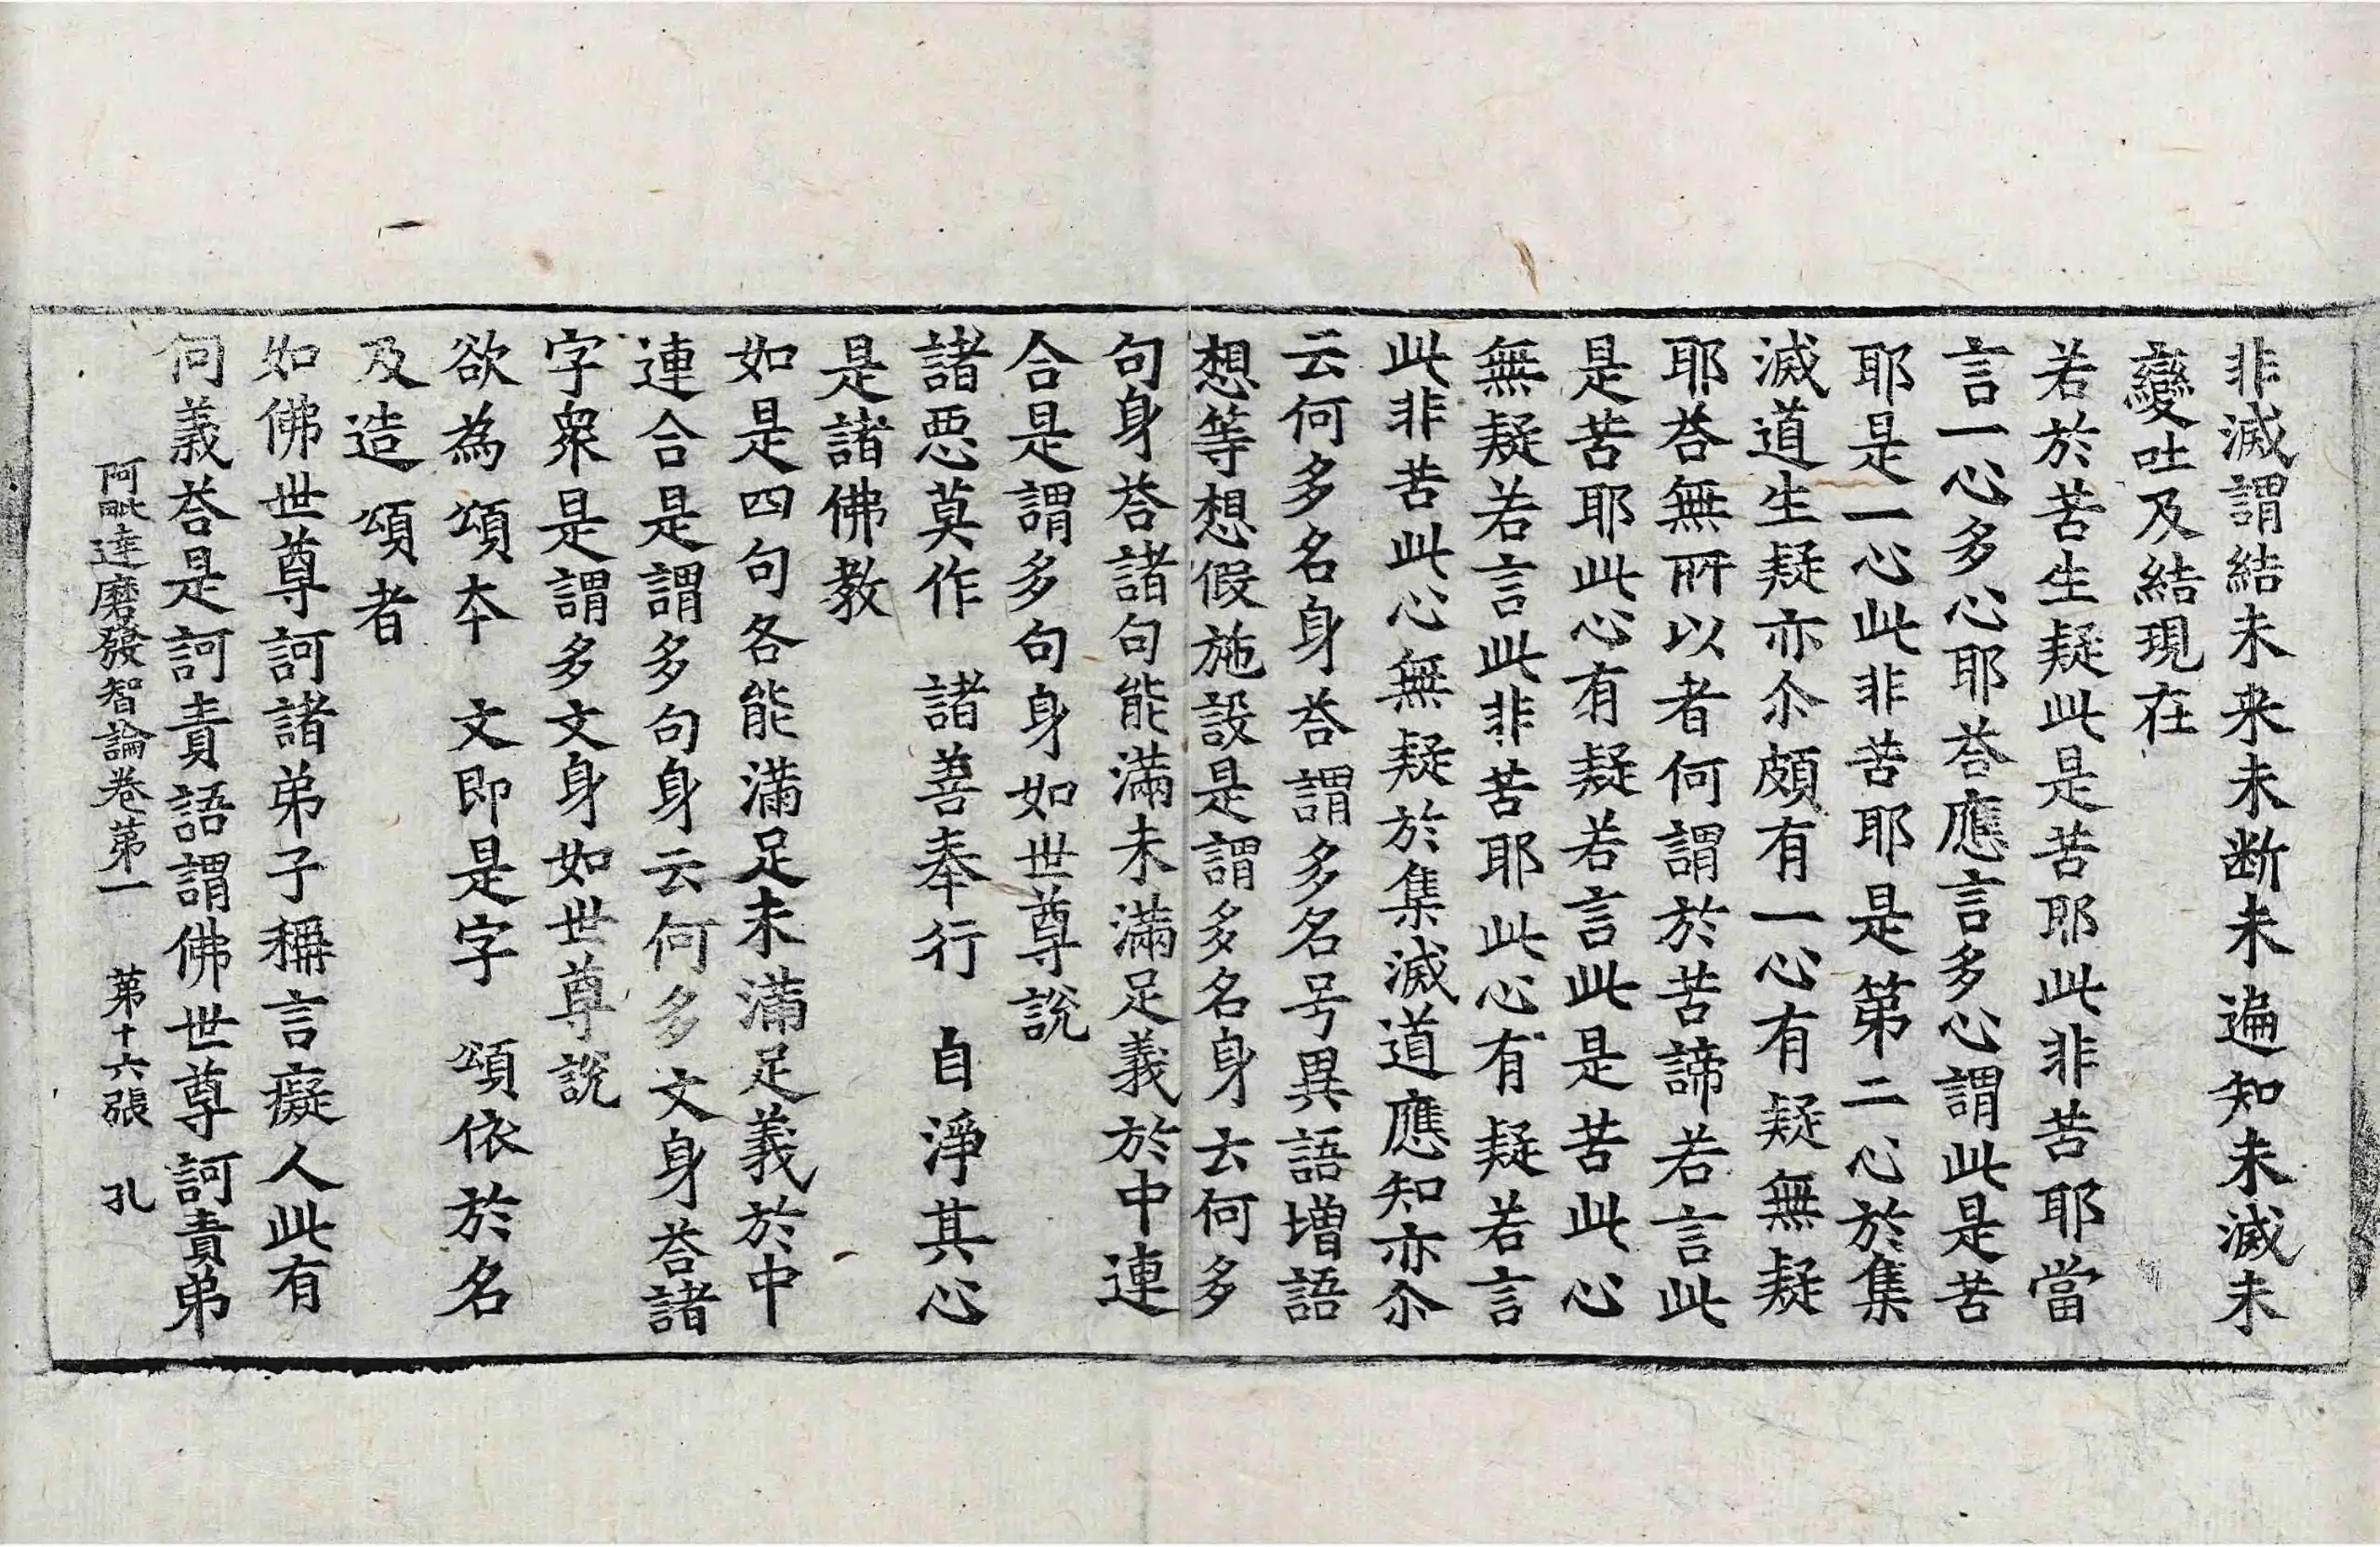 非滅謂結未来未断未遍知未滅未
變吐及結現在
若於苦生疑此是苦耶此非苦耶當
言一心多心耶荅應言多心謂此是苦
耶是一心此非苦耶是第二心於集
滅道生疑亦尒頗有一心有疑無疑
耶荅無所以者何謂於苦諦若言此
是苦耶此心有疑若言此是苦此心
無疑若言此非苦耶此心有疑若言
此非苦此心無疑於集滅道應知亦尒
云何多名身荅謂多名号異語增語
想等想假施設是謂多名身云何多
句身荅諸句能滿未滿足義於中連
合是謂多句身如世尊說
諸惡莫作　諸善奉行　自淨其心
是諸佛教
如是四句各能滿足未滿足義於中
連合是謂多句身云何多文身荅諸
字衆是謂多文身如世尊說
欲為頌夲　文即是字　頌依於名
及造頌者
如佛世尊訶諸弟子稱言癡人此有
何義荅是訶責語謂佛世尊訶責弟
阿毗達磨發智論卷第一　第十六張　孔